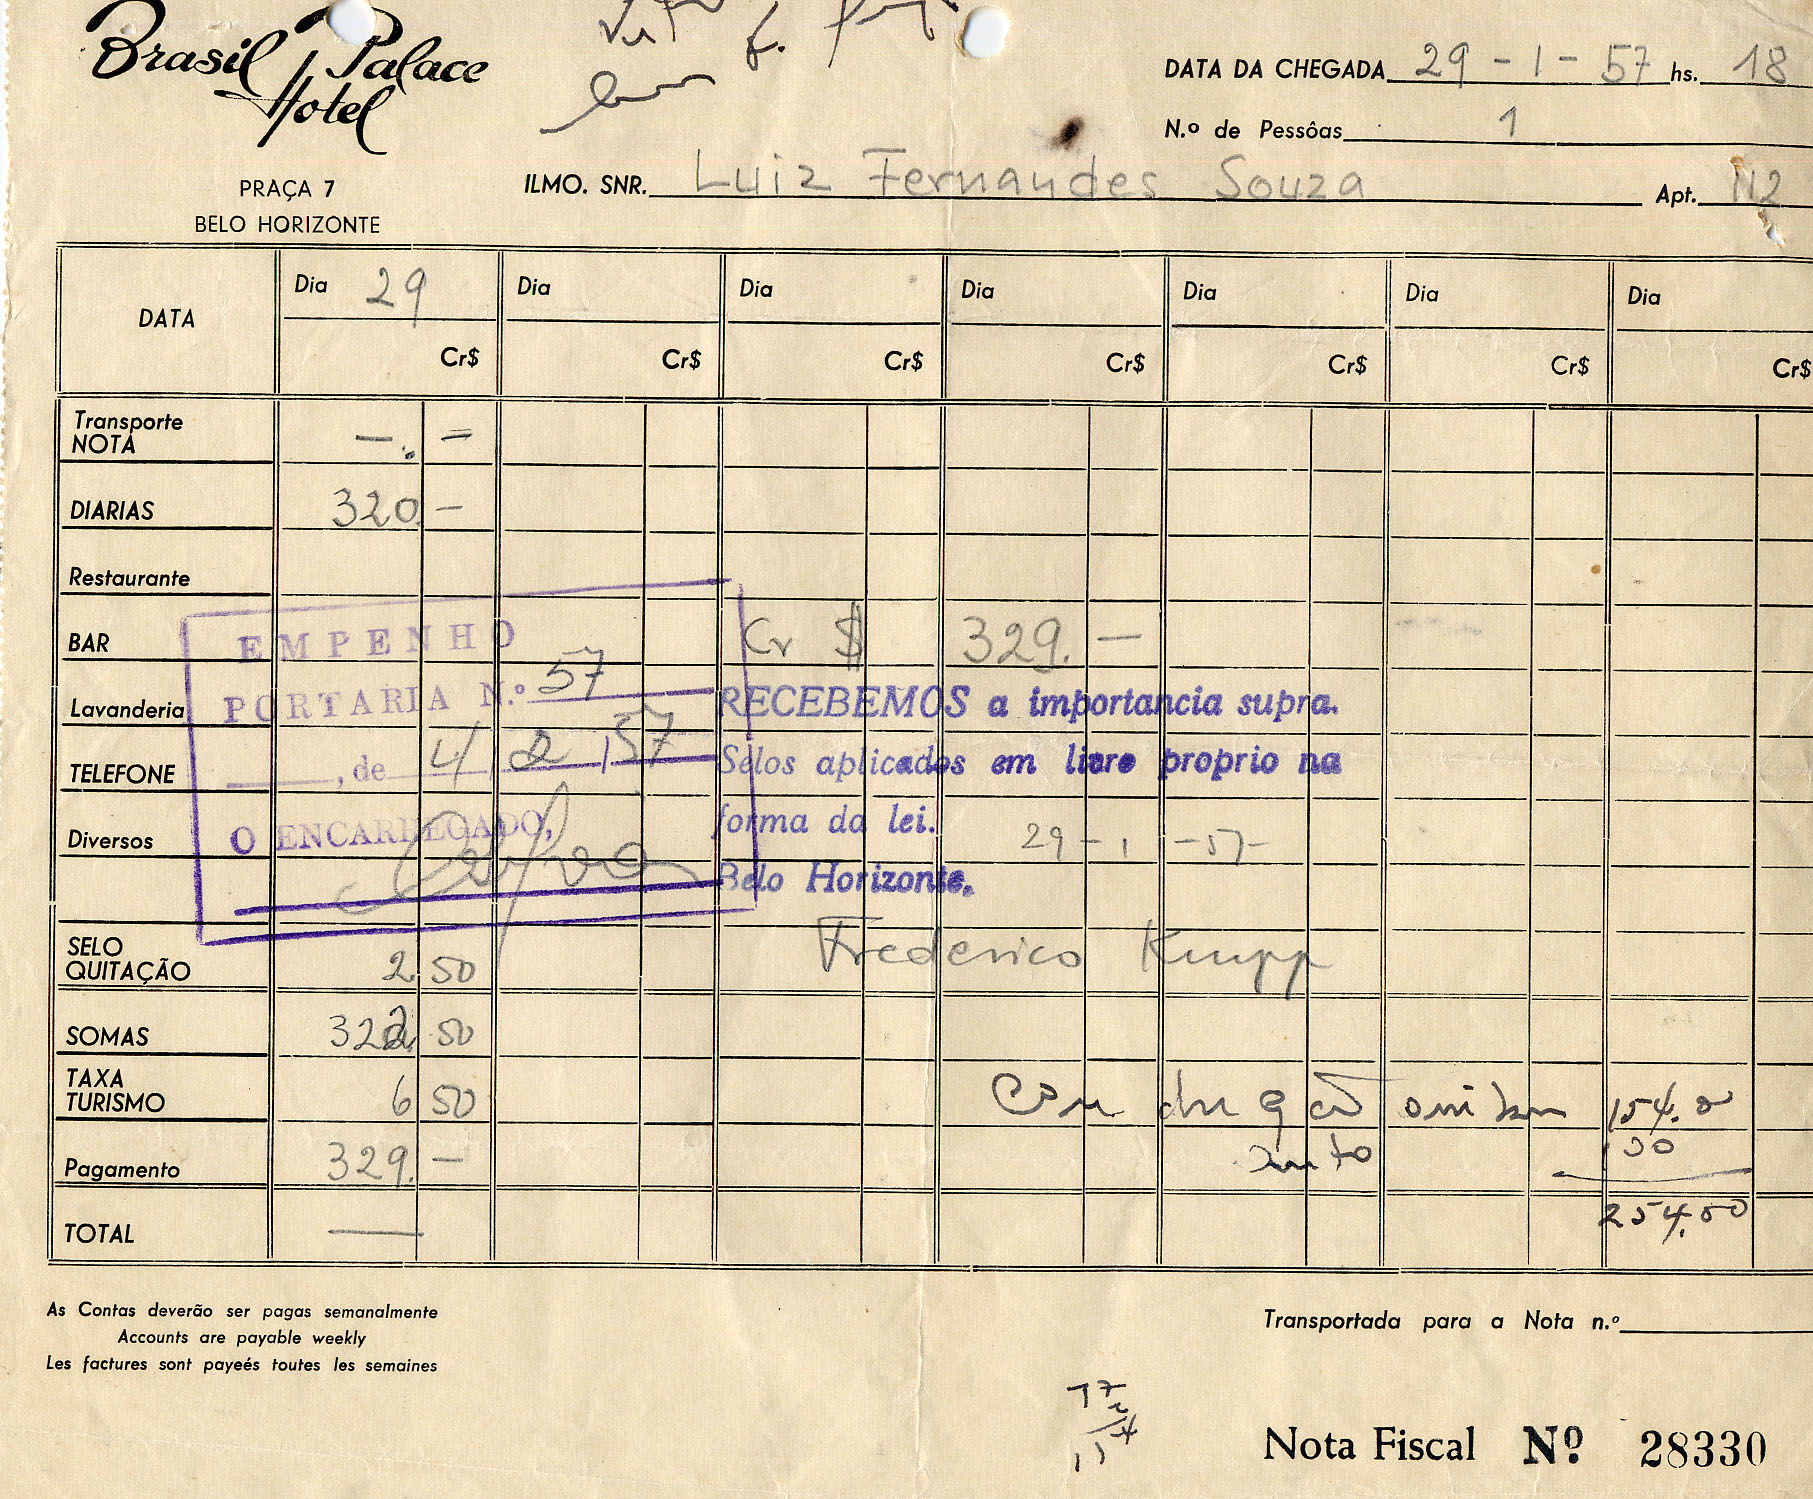 Brasil Palace
Hotel
PRAÇA 7
BELO HORIZONTE
DATA DA CHEGADA 29-1-57 hs. 18
N.º de Pessôas 1
ILMO. SNR. Luiz Fernandes Souza Apt.
DATA Dia 29 Dia Dia Dia Dia Dia Dia
Cr$ Cr$ Cr$ Cr$ Cr$ Cr$ Cr$
Transporte
NOTA —. =
DIARIAS 320. —
Restaurante
BAR
Lavanderia
TELEFONE
Diversos
EMPENHO
PORTARIA N.º 57
, de 4/2/57
O ENCARREGADO,
Cr $ 329. —
RECEBEMOS a importancia supra.
Selos aplicados em livro proprio na
forma da lei.
29-1-57-
Belo Horizonte,
Frederico Krupp
SELO
QUITAÇÃO 2.50
SOMAS 322.50
TAXA
TURISMO 6 50
Pagamento 329. —
TOTAL —
Condução 154.
auto 100
254.50
As Contas deverão ser pagas semanalmente
Accounts are payable weekly
Les factures sont payeés toutes les semaines
Transportada para a Nota n.º
Nota Fiscal Nº 28330